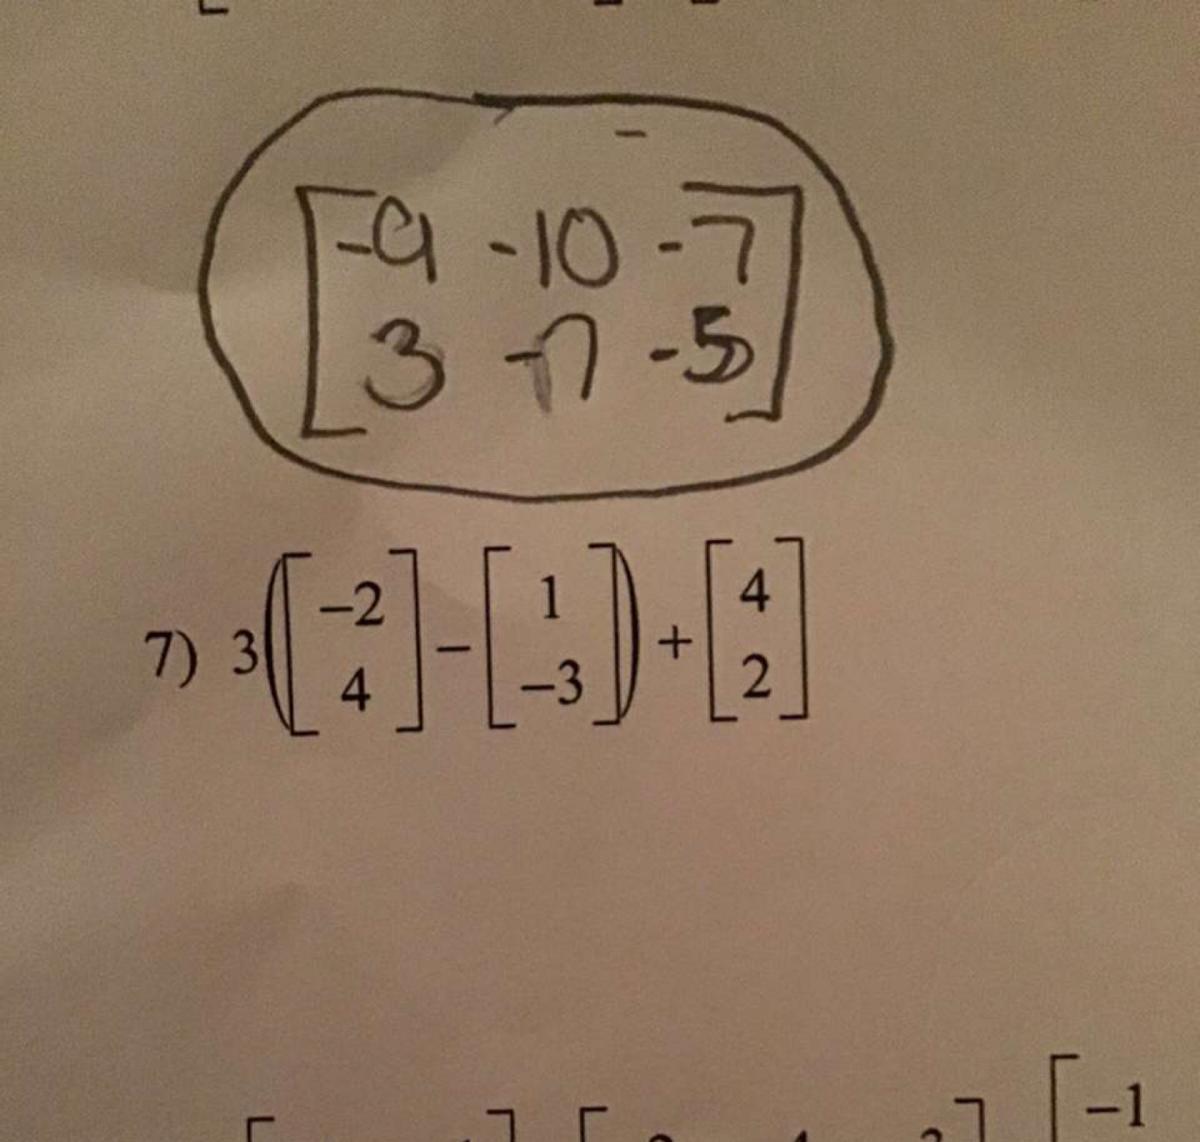 -9 -10 -7
3 -7 -5
7) 3([-2 4] - [1 -3]) + [4 2]
-1